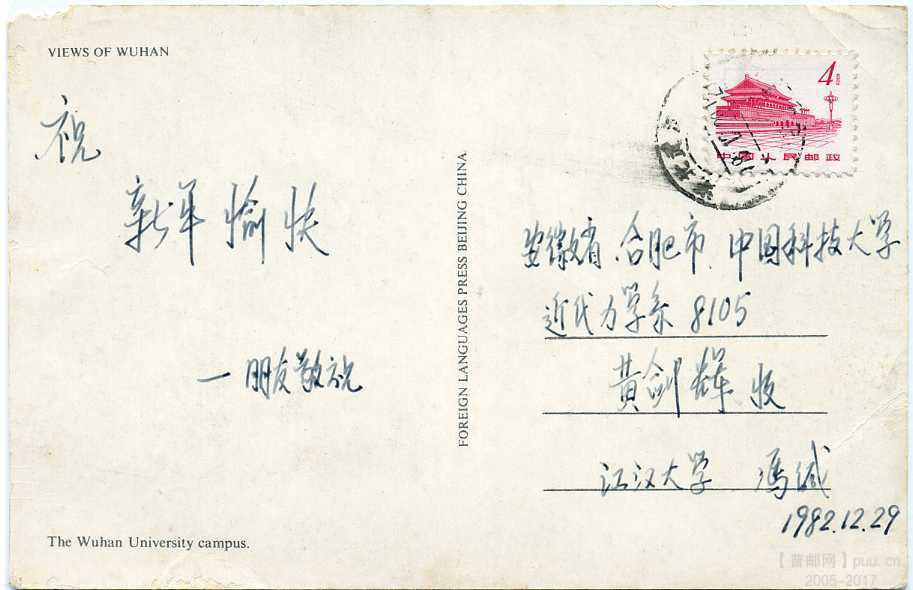 VIEWS OF WUHAN
祝
新年愉快
一朋友敬祝
The Wuhan University campus.
FOREIGN LANGUAGES PRESS BEIJING CHINA
4
中国人民邮政
安徽省.合肥市.中国科技大学
近代力学系 8105
黄剑辉 收
江汉大学 冯缄
1982.12.29
【普邮网】puu.cn
2005-2017